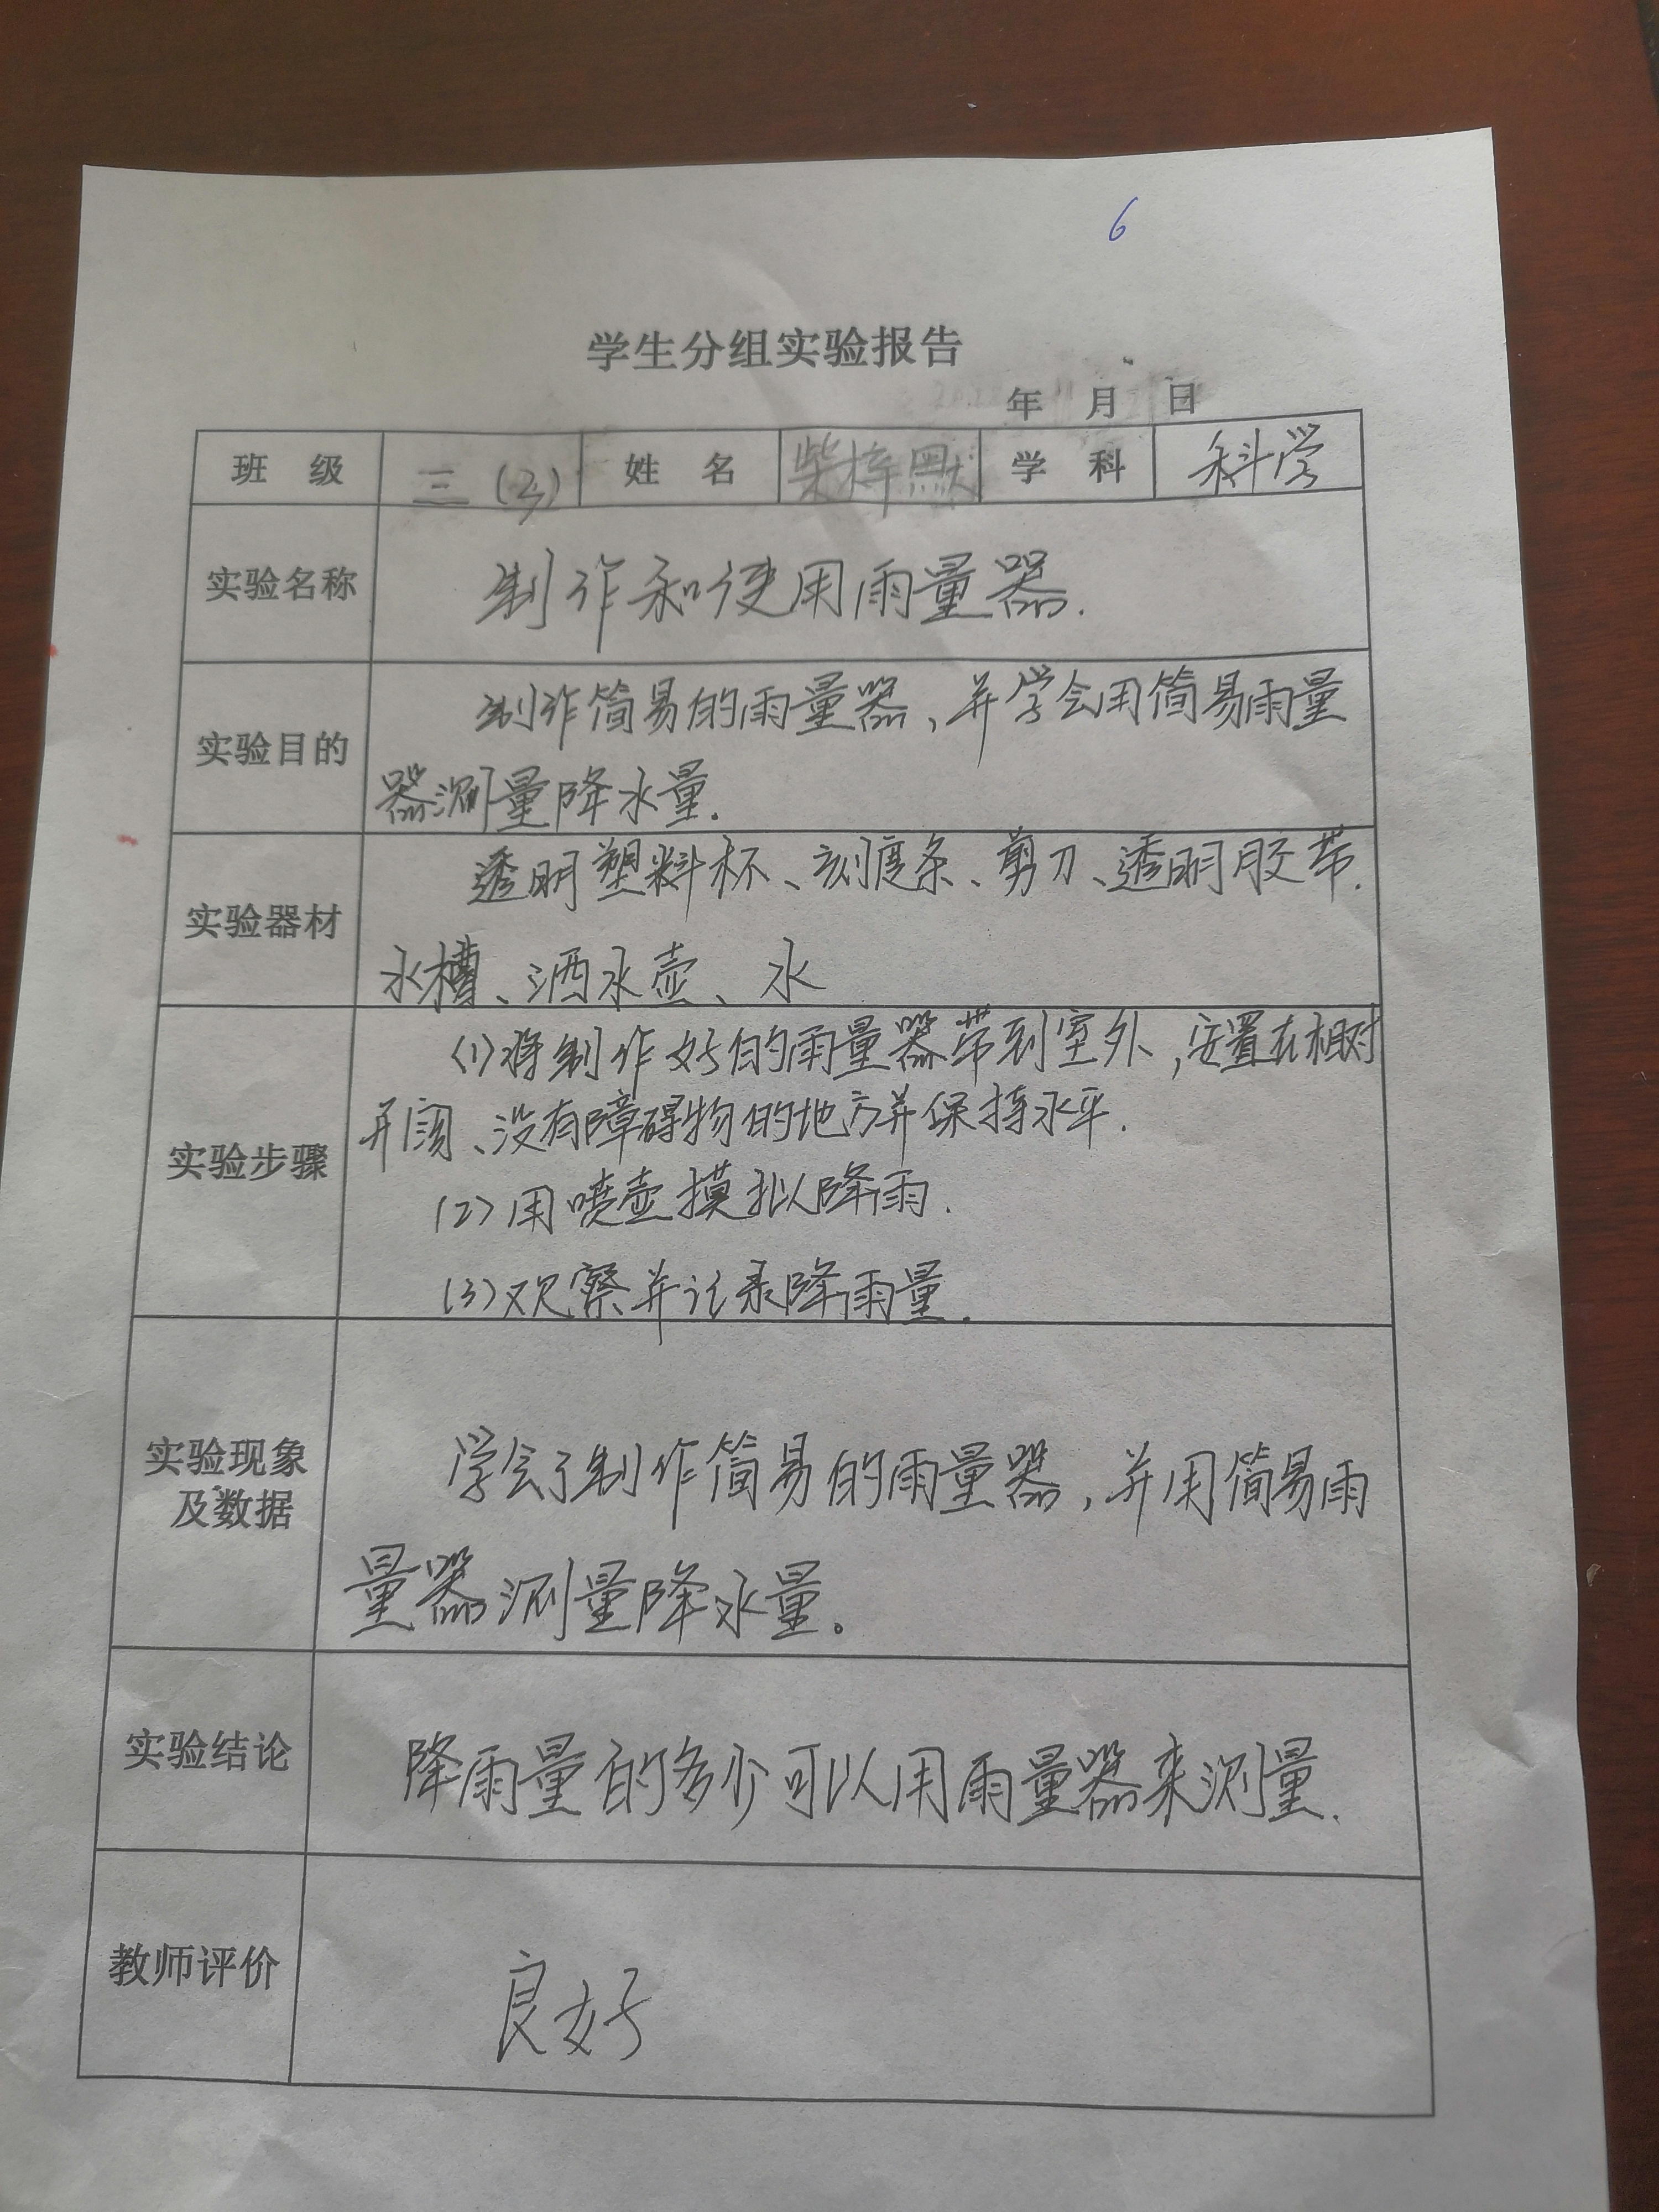 6
学生分组实验报告
年 月 日
班 级 三（2） 姓 名 柴梓默 学 科 科学
实验名称 制作和使用雨量器.
实验目的 制作简易的雨量器、并学会用简易雨量
器测量降水量.
实验器材 透明塑料杯、刻度条、剪刀、透明胶带.
水槽、洒水壶、水
实验步骤 (1)将制作好的雨量器带到室外,安置在相对
开阔、没有障碍物的地方并保持水平.
(2)用喷壶摸拟降雨.
(3)观察并记录降雨量.
实验现象
及数据 学会了制作简易的雨量器,并用简易雨
量器测量降水量。
实验结论 降雨量的多少可以用雨量器来测量.
教师评价 良好